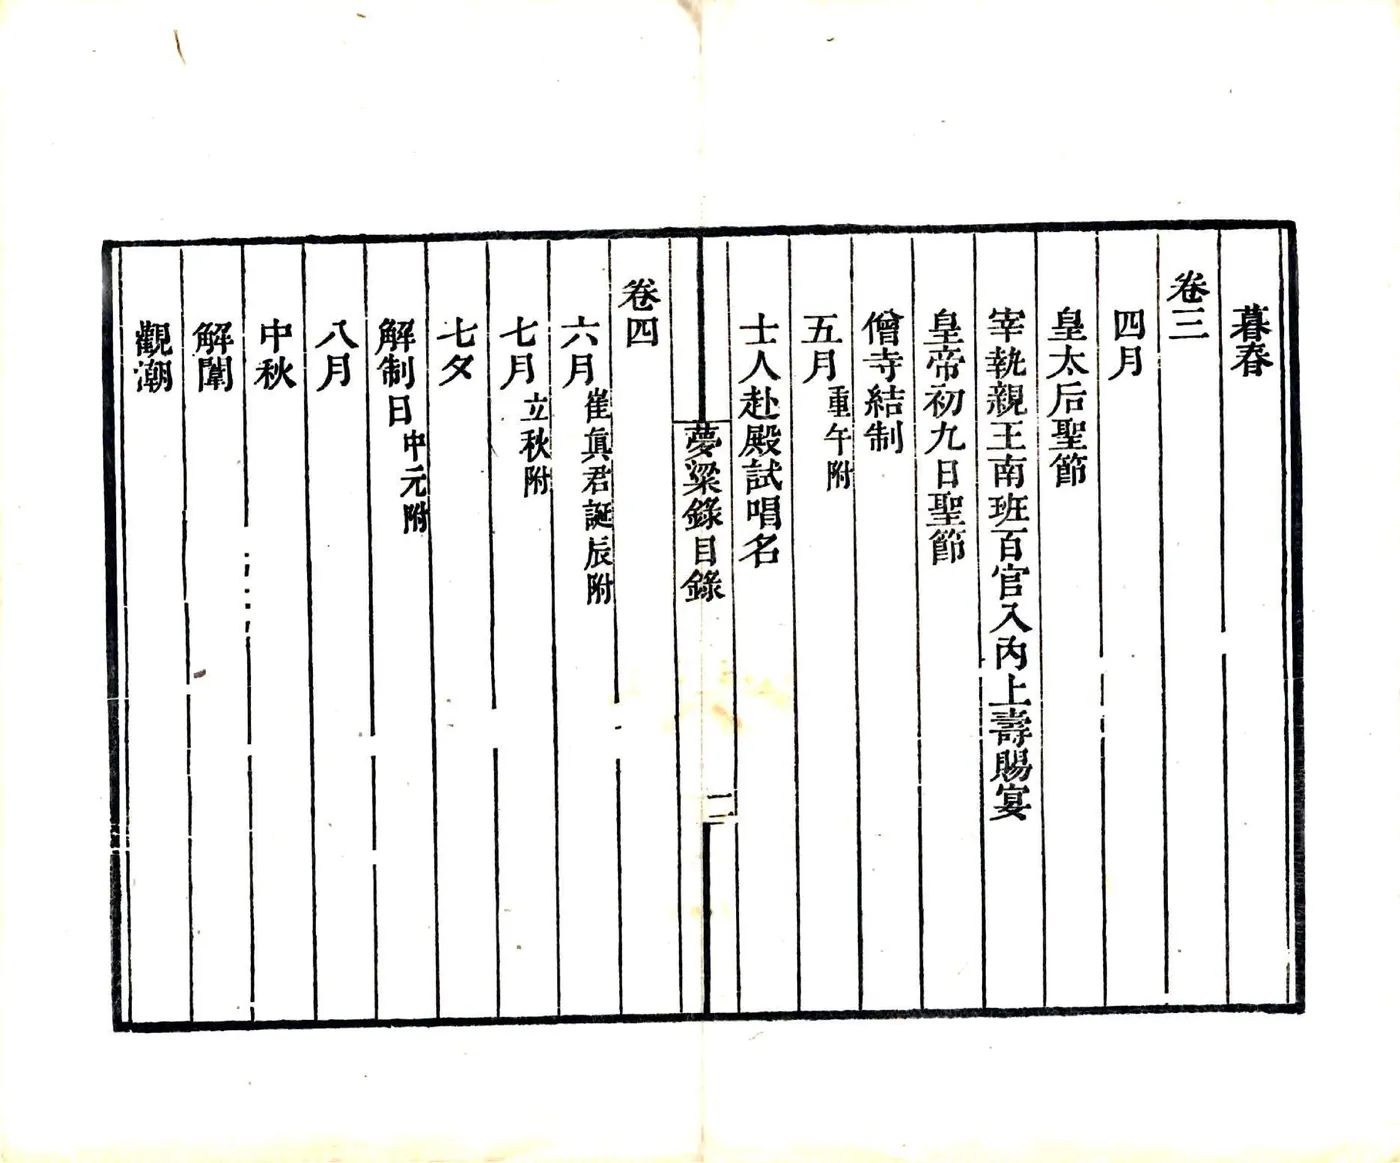 暮春
卷三
四月
皇太后聖節
宰執親王南班百官入內上壽賜宴
皇帝初九日聖節
僧寺結制
五月重午附
士人赴殿試唱名
夢粱錄目錄 二
卷四
六月崔眞君誕辰附
七月立秋附
七夕
解制日中元附
八月
中秋
解闈
觀潮